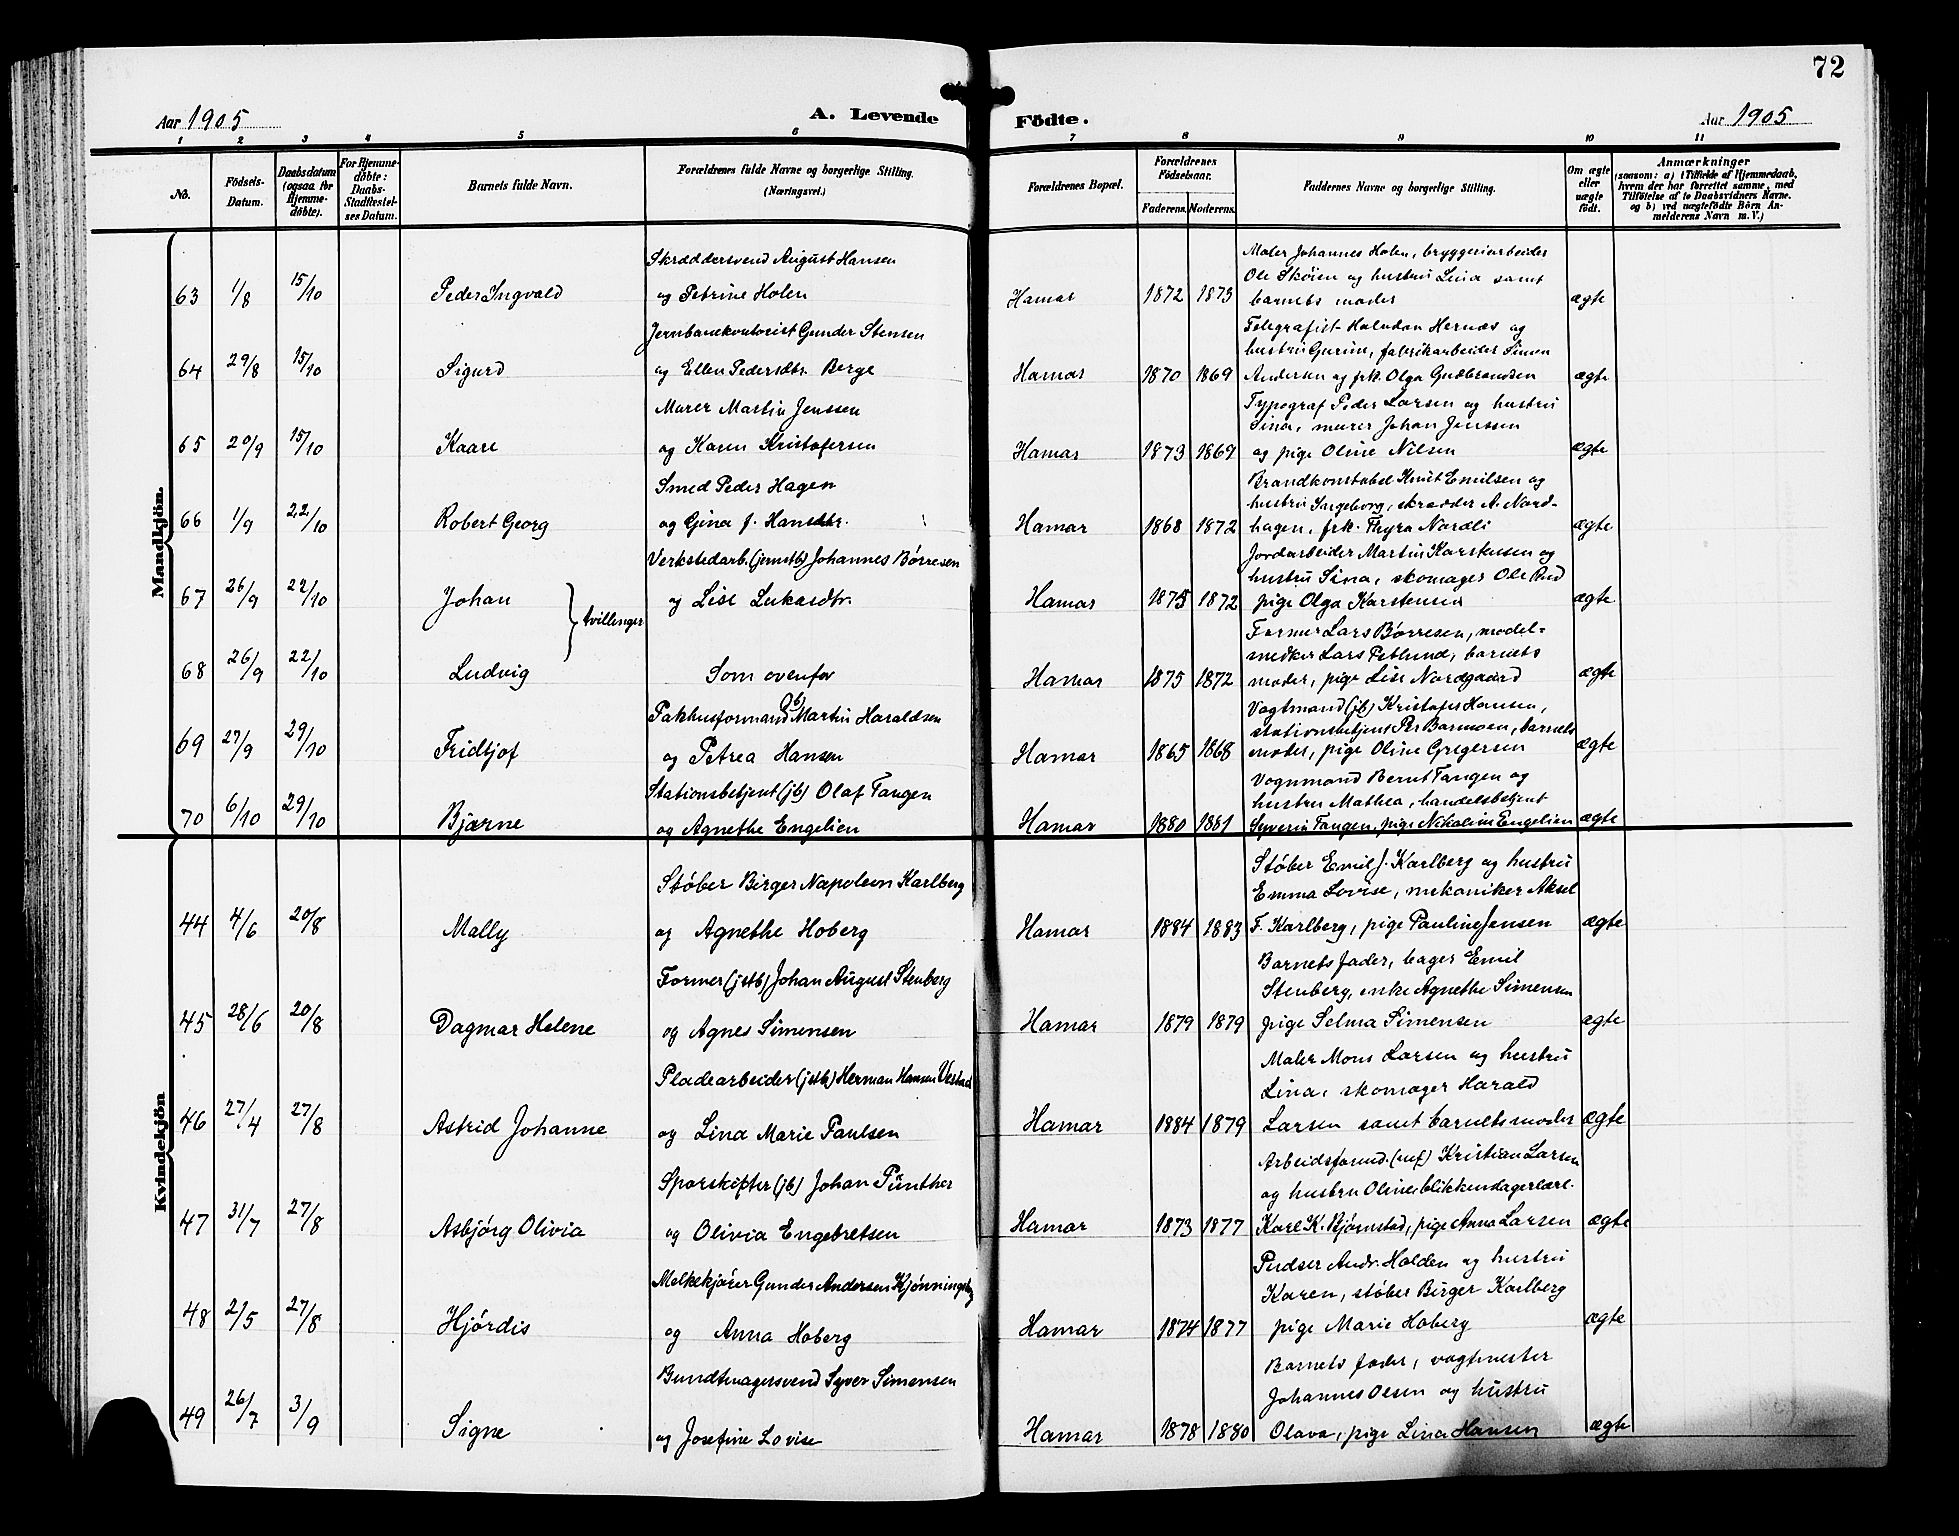 72
Aar 1905
A. Levende Födte.
Aar 1905
1 2 3 4 5 6 7 8 9 10 11
No.
Födsels-Datum.
Daabsdatum (ogsaa for Hjemmedöbte).
For Hjemmedöbte: Daabs-Stadfæstelses Datum.
Barnets fulde Navn.
Forældrenes fulde Navne og borgerlige Stilling. (Næringsvei.)
Forældrenes Bopæl.
Forældrenes Födselsaar.
Faderens. Moderens.
Faddernes Navne og borgerlige Stilling.
Om ægte eller uægte født.
Anmærkninger
(saasom: a) i Tilfælde af Hjemmedaab, hvem der har forrettet samme, med Tilföielse af to Daabsvidners Navne. og b) ved uægtefödte Börn Anmelderens Navn m. V.)
Mandkjön.
Skræddersvend August Hansen
63 1/8 15/10 Peder Ingvald og Petrine Holen Hamar 1872 1873
Maler Johannes Holen, bryggeriarbeider
Ole Skøien og hustru Lina samt
barnets moder ægte
Jernbanekontorist Gunder Stensen
64 29/8 15/10 Sigurd og Ellen Pedersdtr. Berge Hamar 1870 1869
Telegrafist Halvdan Hernæs og
hustru Gurine, fabrikarbeider Simen
Andersen og frk. Olga Gudbrandsen ægte
Murer Martin Jenssen
65 20/9 15/10 Kaare og Karen Kristofersen Hamar 1873 1869
Typograf Peder Larsen og hustru
Sina, murer Johan Jenssen
og pige Oline Nilsen ægte
Smed Peder Hagen
66 1/9 22/10 Robert Georg og Gina f. Hansdtr. Hamar 1868 1872
Brandkonstabel Knut Emilsen og
hustru Ingeborg, skrædder A. Nord-
hagen, frk. Thyra Nordli ægte
Verkstedarb. (jernstb) Johannes Børresen
67 26/9 22/10 Johan } tvillinger og Lise Lukasdtr. Hamar 1875 1872
Jordarbeider Martin Karstensen og
hustru Sina, skomager Ole Rud
pige Olga Karstensen ægte
68 26/9 22/10 Ludvig Som ovenfor Hamar 1875 1872
Former Lars Børresen, model-
snedker Lars Petlund, barnets
moder, pige Lise Nordgaard ægte
Pakhusformand (jb) Martin Haraldsen
69 27/9 29/10 Fridtjof og Petrea Hansen Hamar 1865 1868
Vagtmand (jb) Kristofer Hansen,
stationsbetjent Per Barmoen, barnets
moder, pige Oline Gregersen ægte
Stationsbetjent (jb) Olaf Tangen
70 6/10 29/10 Bjarne og Agnethe Engelien Hamar 1880 1881
Vognmand Bernt Tangen og
hustru Mathea, handelsbetjent
Syverin Tangen, pige Nikoline Engelien ægte
Kvindekjön
Støber Birger Napoleon Karlberg
44 4/6 20/8 Mally og Agnethe Hoberg Hamar 1884 1883
Støber Emil J. Karlberg og hustru
Emma Lovise, mekaniker Aksel
F. Karlberg, pige Pauline Jensen ægte
Former (jstb) Johan August Stenberg
45 28/6 20/8 Dagmar Helene og Agnes Simensen Hamar 1879 1879
Barnets fader, bager Emil
Stenberg, enke Agnethe Simensen
pige Selma Simensen ægte
Pladearbeider (jstb) Herman Hansen Vestad
46 27/4 27/8 Astrid Johanne og Lina Marie Paulsen Hamar 1884 1879
Maler Mons Larsen og hustru
Lina, skomager Harald
Larsen samt barnets moder ægte
Sporskifter (jb) Johan Pünther
47 31/7 27/8 Asbjörg Olivia og Olivia Engebretsen Hamar 1873 1877
Arbeidsformd. Kristian Larsen
og hustru Oline, blikkenslagerlærl.
Karl K. Bjørnstad, pige Anna Larsen ægte
Melkekjører Gunder Andersen Kjønningsby
48 2/5 27/8 Hjördis og Anna Hoberg Hamar 1874 1877
Pudser Andr. Holden og hustru
Karen, støber Birger Karlberg
pige Marie Hoberg ægte
Bundtmagersvend Syver Simensen
49 26/7 3/9 Signe og Josefine Lovise Hamar 1878 1880
Barnets fader, vagtmester
Johannes Olsen og hustru
Olava, pige Lina Hansen ægte